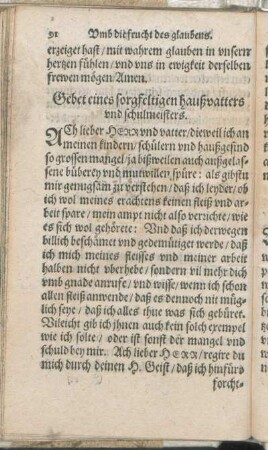 91 Vmb die frucht des glaubens.
erzeiget hast / mit wahrem glauben in vnsern
hertzen fühlen / vnd vns in ewigkeit derselben
frewen mögen / Amen.
Gebet eines sorgfeltigen haußvatters
vnd schulmeisters.
ACh lieber HERR vnd vatter / dieweil ich an
meinen kindern / schülern vnd haußgesind
so grossen mangel / ja bißweilen auch außgelas-
sene büberey vnd mutwillen / spüre: als gibstu
mir genugsam zu verstehen / daß ich leyder / ob
ich wol meines erachtens keinen fleiß vnd ar-
beit spare / mein ampt nicht also verrichte / wie
es sich wol gehörete: Vnd daß ich derwegen
billich beschämet vnd gedemütiget werde / daß
ich mich meines fleisses vnd meiner arbeit
halben nicht vberhebe / sondern vil mehr dich
vmb gnade anrufe / vnd wisse / wenn ich schon
allen fleiß anwende / daß es dennoch nit müg-
lich seye / daß ich alles thue was sich gebüret.
Vileicht gib ich jhnen auch kein solch exempel
wie ich solte / oder ist sonst der mangel vnd
schuld bey mir. Ach lieber HERR / regire du
mich durch deinen H. Geist / daß ich hinfürs
forcht-